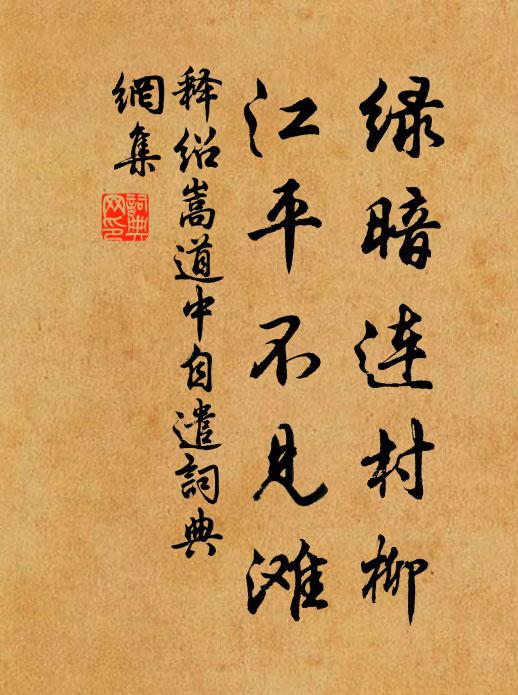 绿暗连村柳
江平不见滩
释绍嵩道中自遣詞典
網集
詞典
网印